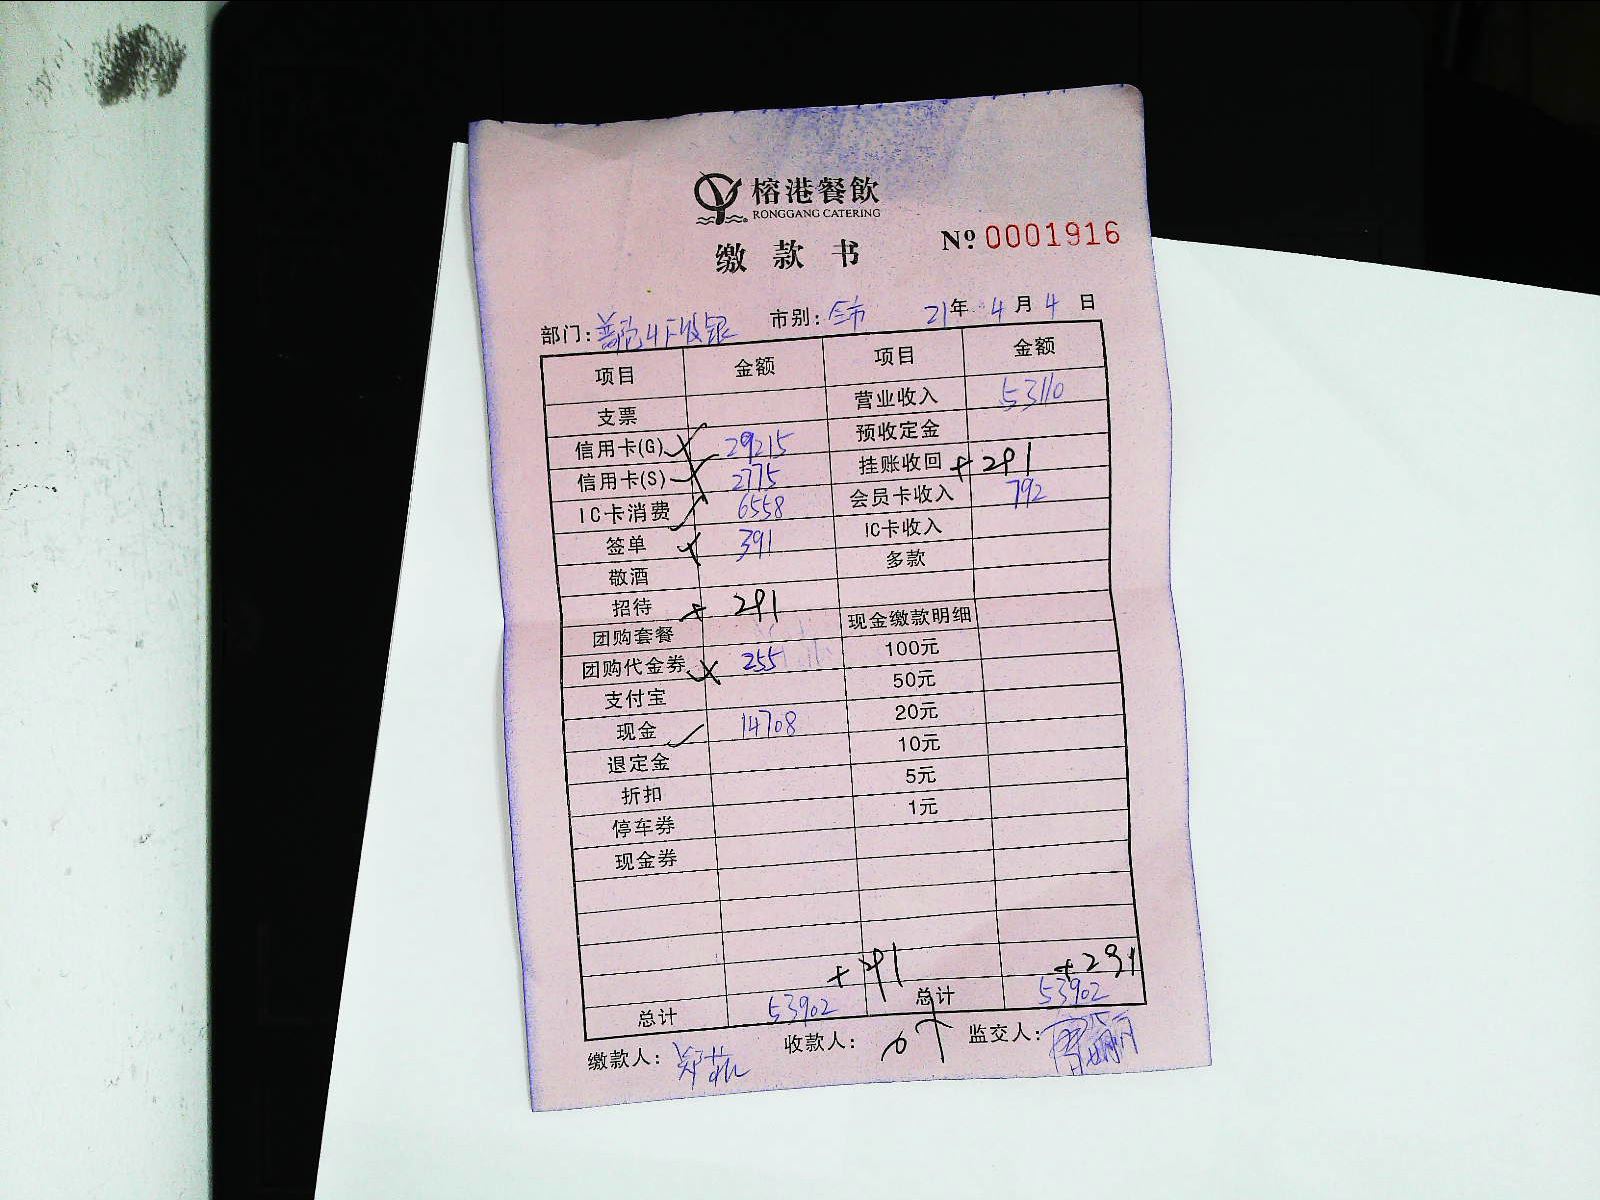 榕港餐飲
RONGGANG CATERING
缴款书
Nº 0001916
部门: 收银 市别: 全市 21年 4月 4日
项目 金额 项目 金额
支票 营业收入 53110
信用卡(G) 29215 预收定金
信用卡(S) 2775 挂账收回 +291
IC卡消费 6558 会员卡收入 792
签单 391 IC卡收入
敬酒 多款
招待 + 291
团购套餐 现金缴款明细
团购代金券 255 100元
支付宝 50元
现金 14708 20元
退定金 10元
折扣 5元
停车券 1元
现金券
+291 +291
总计 53902 总计 53902
缴款人: 收款人: 监交人: